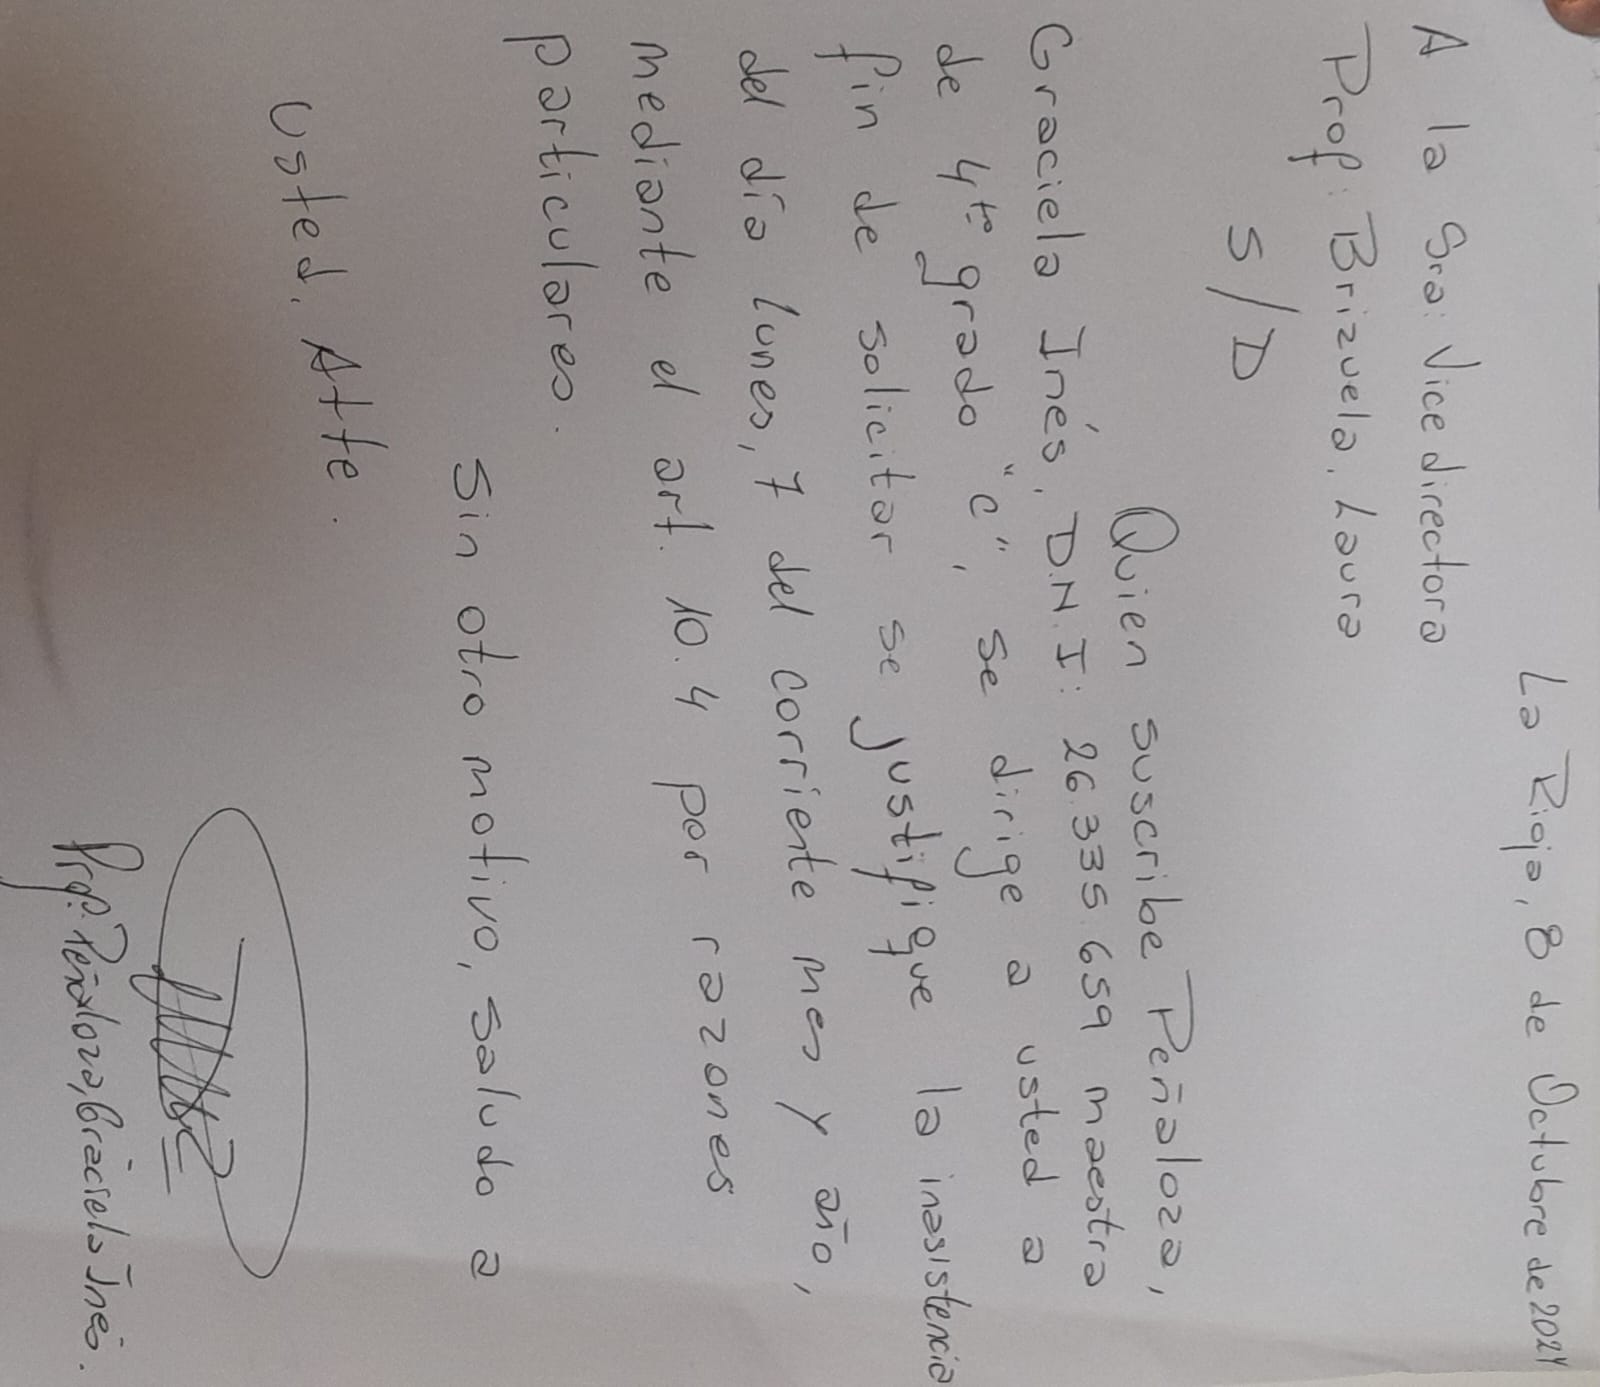 La Rioja, 8 de Octubre de 2024
A la Sra: Vice directora
Prof: Brizuela, Laura
S/D
Quien suscribe Peñaloza,
Graciela Inés, D.N.I: 26.335.659 maestra
de 4to grado "c", se dirige a usted a
fin de solicitar se justifique la inasistencia
del día lunes, 7 del corriente mes y año,
mediante el art. 10.4 por razones
particulares.
Sin otro motivo, saludo a
usted. Atte.
Prof. Peñaloza, Graciela Inés.